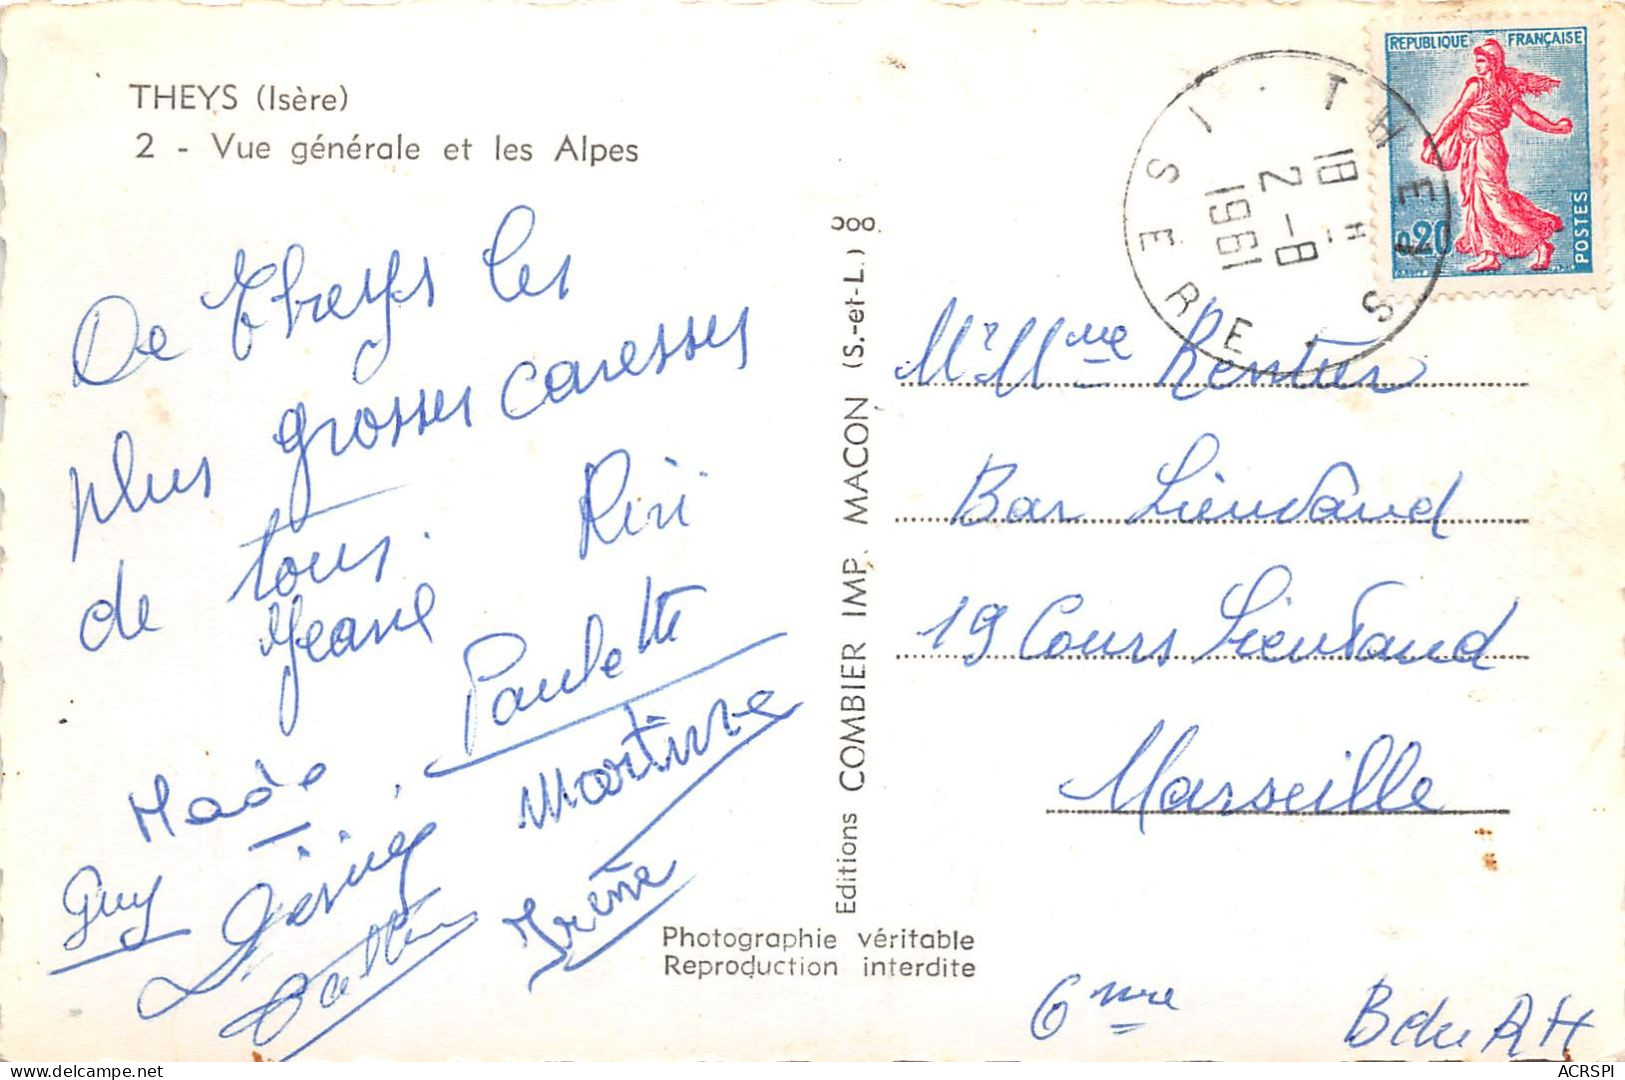 THEYS (Isère)
2 - Vue générale et les Alpes
De Theys les
plus grosses caresses
de tous.
Riri
Jeanne
Paulette
Mado
Martine
Guy
Irène
Editions COMBIER IMP. MACON (S.-et-L.)
Photographie véritable
Reproduction interdite
REPUBLIQUE FRANÇAISE
0,20
POSTES
THEYS
ISERE
18 H
2 - 8
1961
Mr Mme
Bar Lieutaud
19 Cours Lieutaud
Marseille
6me
B du RH
ACRSPI